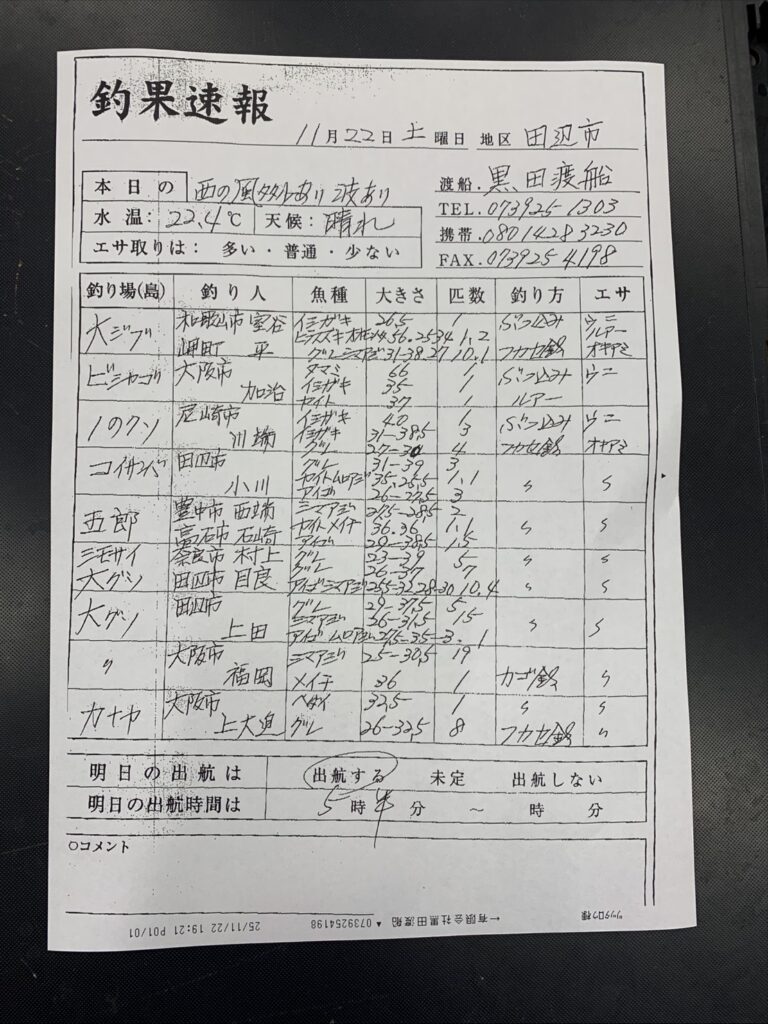 釣果速報
11月22日土曜日 地区 田辺市
本日の 西の風 あり 波あり
渡船.黒田渡船
水温: 22.4℃ 天候: 晴れ
TEL.073925 1303
携帯.08014283230
エサ取りは: 多い・普通・少ない
FAX.073925 4198
釣り場(島) 釣り人 魚種 大きさ 匹数 釣り方 エサ
大ジブ 和歌山市 室谷 イシガキ 26.5 1 ぶっ込み ウニ
ルアー
岬町 平 グレ シマアジ 31-38.27 10.1 フカセ釣 オキアミ
ビシャゴ 大阪市 タマミ 66 1 ぶっ込み ウニ
加治 イシガキ 35 1
ヤイト 37 1 ルアー
尼崎市 イシガキ 40 1 ぶっ込み ウニ
川端 イシガキ 31-38.5 3
グレ 4 フカセ釣 オキアミ
田辺市 グレ 31-39 3
小川 ヤイト ムロアジ 35.25.5 1.1 〃 〃
アイゴ 3
五郎 豊中市 西端 シマアジ 27.5-28.5 2
高石市 石崎 ヤイト メイチ 36.36 1.1 〃 〃
アイゴ 29-38.5 1.5
ミモサイ 奈良市 村上 グレ 23-39 5 〃 〃
大グソ 田辺市 目良 グレ 26-37 7
アイゴ シマアジ 25.5-32.28-30 10.4 〃 〃
大グソ 田辺市 グレ 29-37.5 5
上田 シマアジ 26-31.5 15 〃 〃
アイゴ ムロアジ
〃 大阪市 シマアジ 25-30.5 19
福岡 メイチ 36 1 カゴ釣 〃
カナヤ 大阪市 ヘダイ 32.5 1 〃 〃
上大迫 グレ 26-32.5 8 フカセ釣 〃
明日の出航は 出航する 未定 出航しない
明日の出航時間は 5時半 分 ～ 時 分
○コメント
25/11/22 19:21 P01/01 0739254198 ▲ ←有限会社黒田渡船